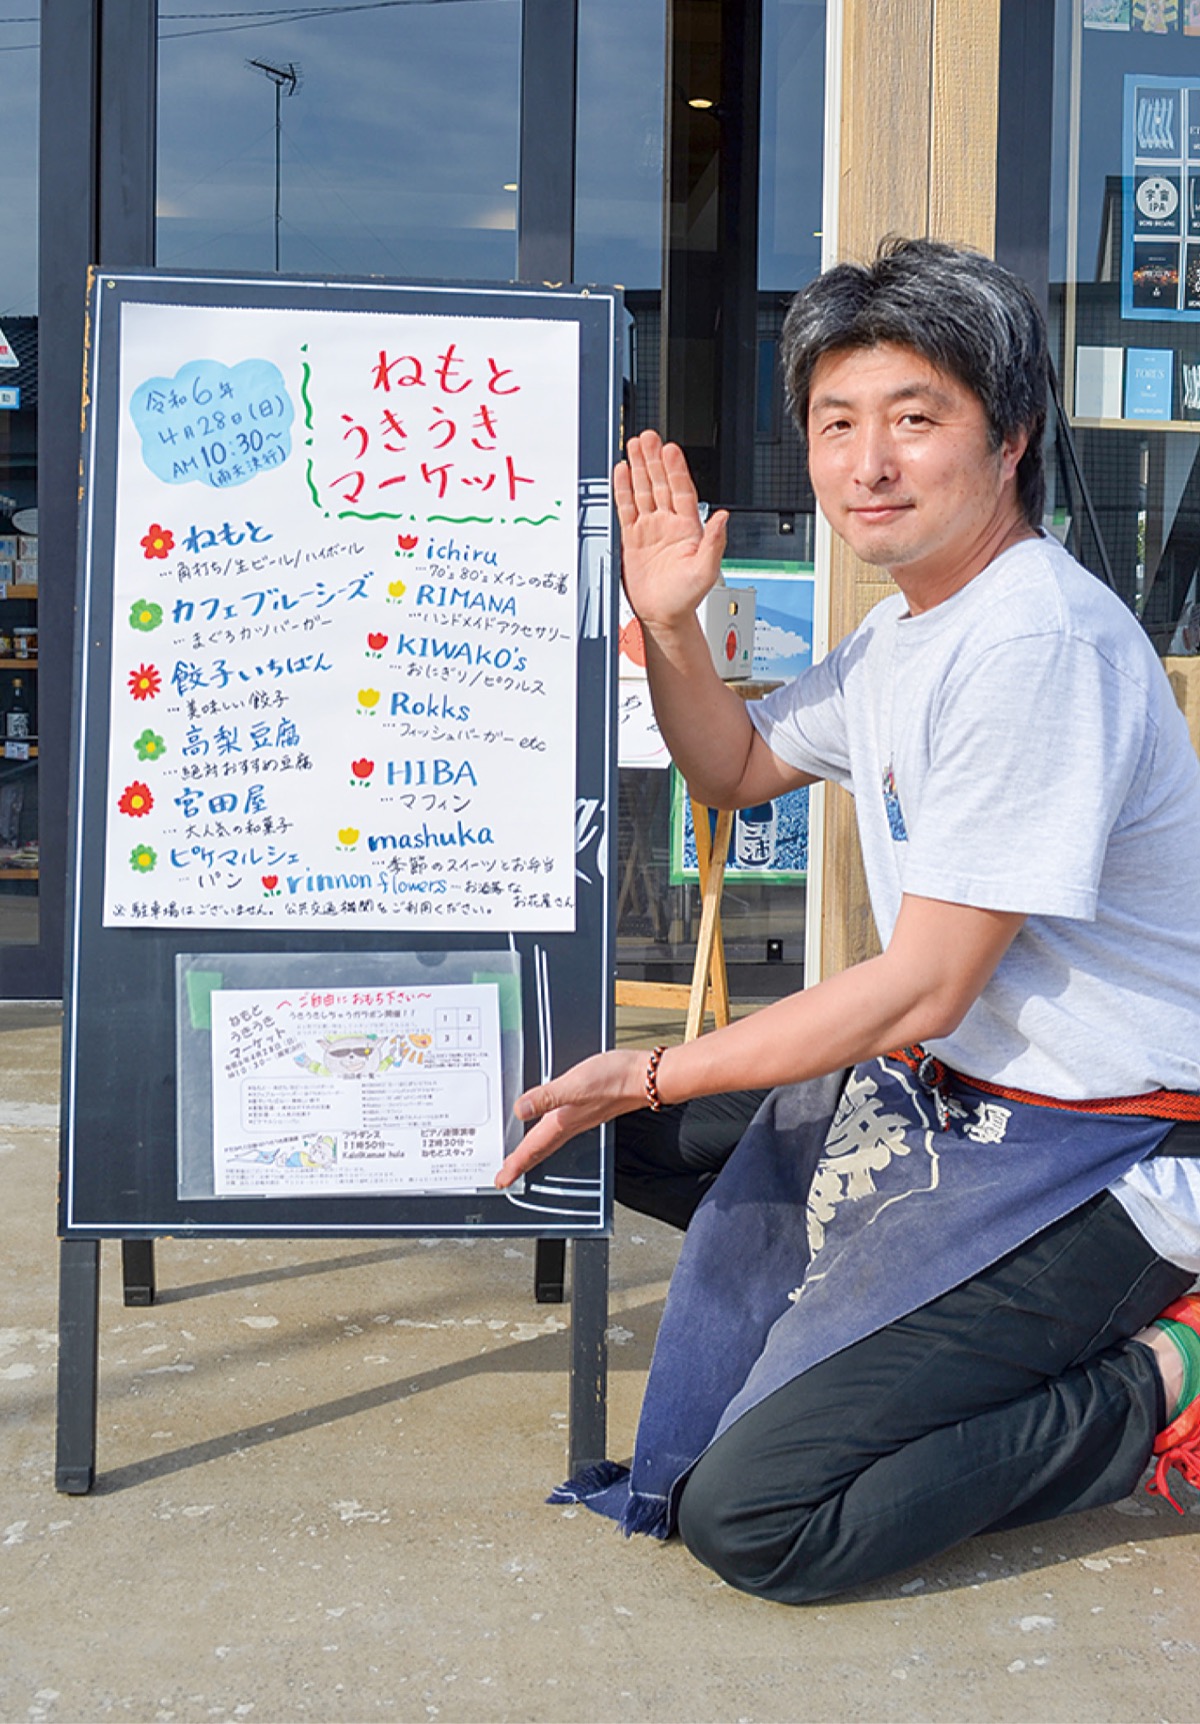 令和6年
4月28日(日)
AM10:30〜
(雨天決行)
ねもと
うきうき
マーケット
ねもと
…角打ち/生ビール/ハイボール
カフェブルーシーズ
…まぐろカツバーガー
餃子いちばん
…美味しい餃子
高梨豆腐
…絶対おすすめ豆腐
宮田屋
…大人気の和菓子
ピケマルシェ
…パン
ichiru
…70's 80'sメインの古着
RIMANA
…ハンドメイドアクセサリー
KIWAKO's
…おにぎり/ピクルス
Rokks
…フィッシュバーガー etc
HIBA
…マフィン
mashuka
…季節のスイーツとお弁当
rinnon flowers…お洒落な
お花屋さん
※駐車場はございません。公共交通機関をご利用ください。
〜ご自由におもち下さい〜
うきうきしちゃうガラポン開催!!
ねもと
うきうき
マーケット
令和6年4月28日(日)
AM10:30〜
1 2
3 4
フラダンス
11時50分〜
ピアノ連弾演奏
12時30分〜
ねもとスタッフ
宇宙
IPA
TORUS